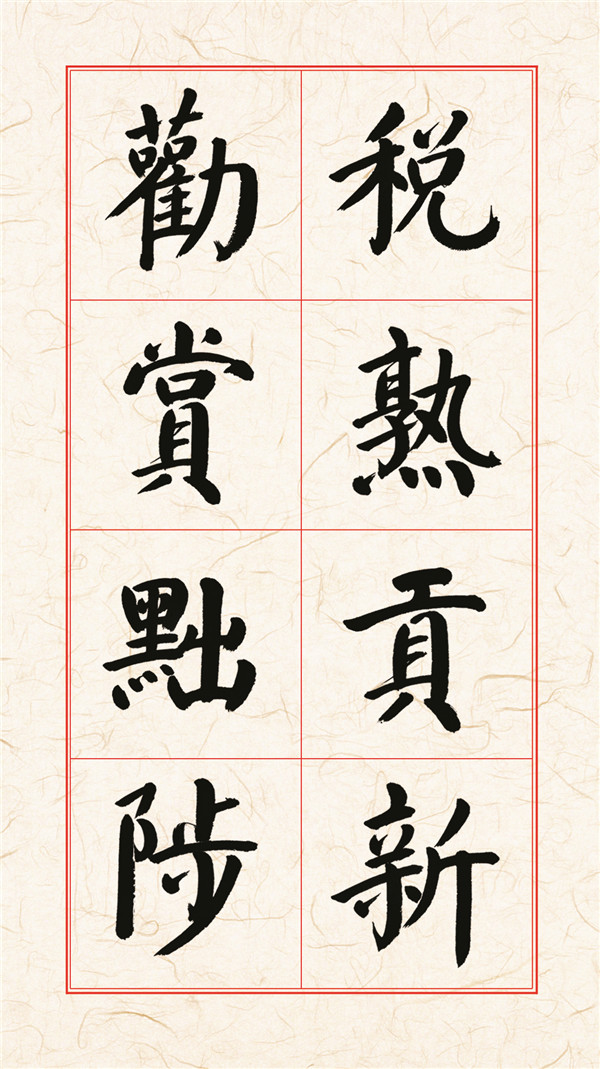 税熟貢新
勸賞黜陟